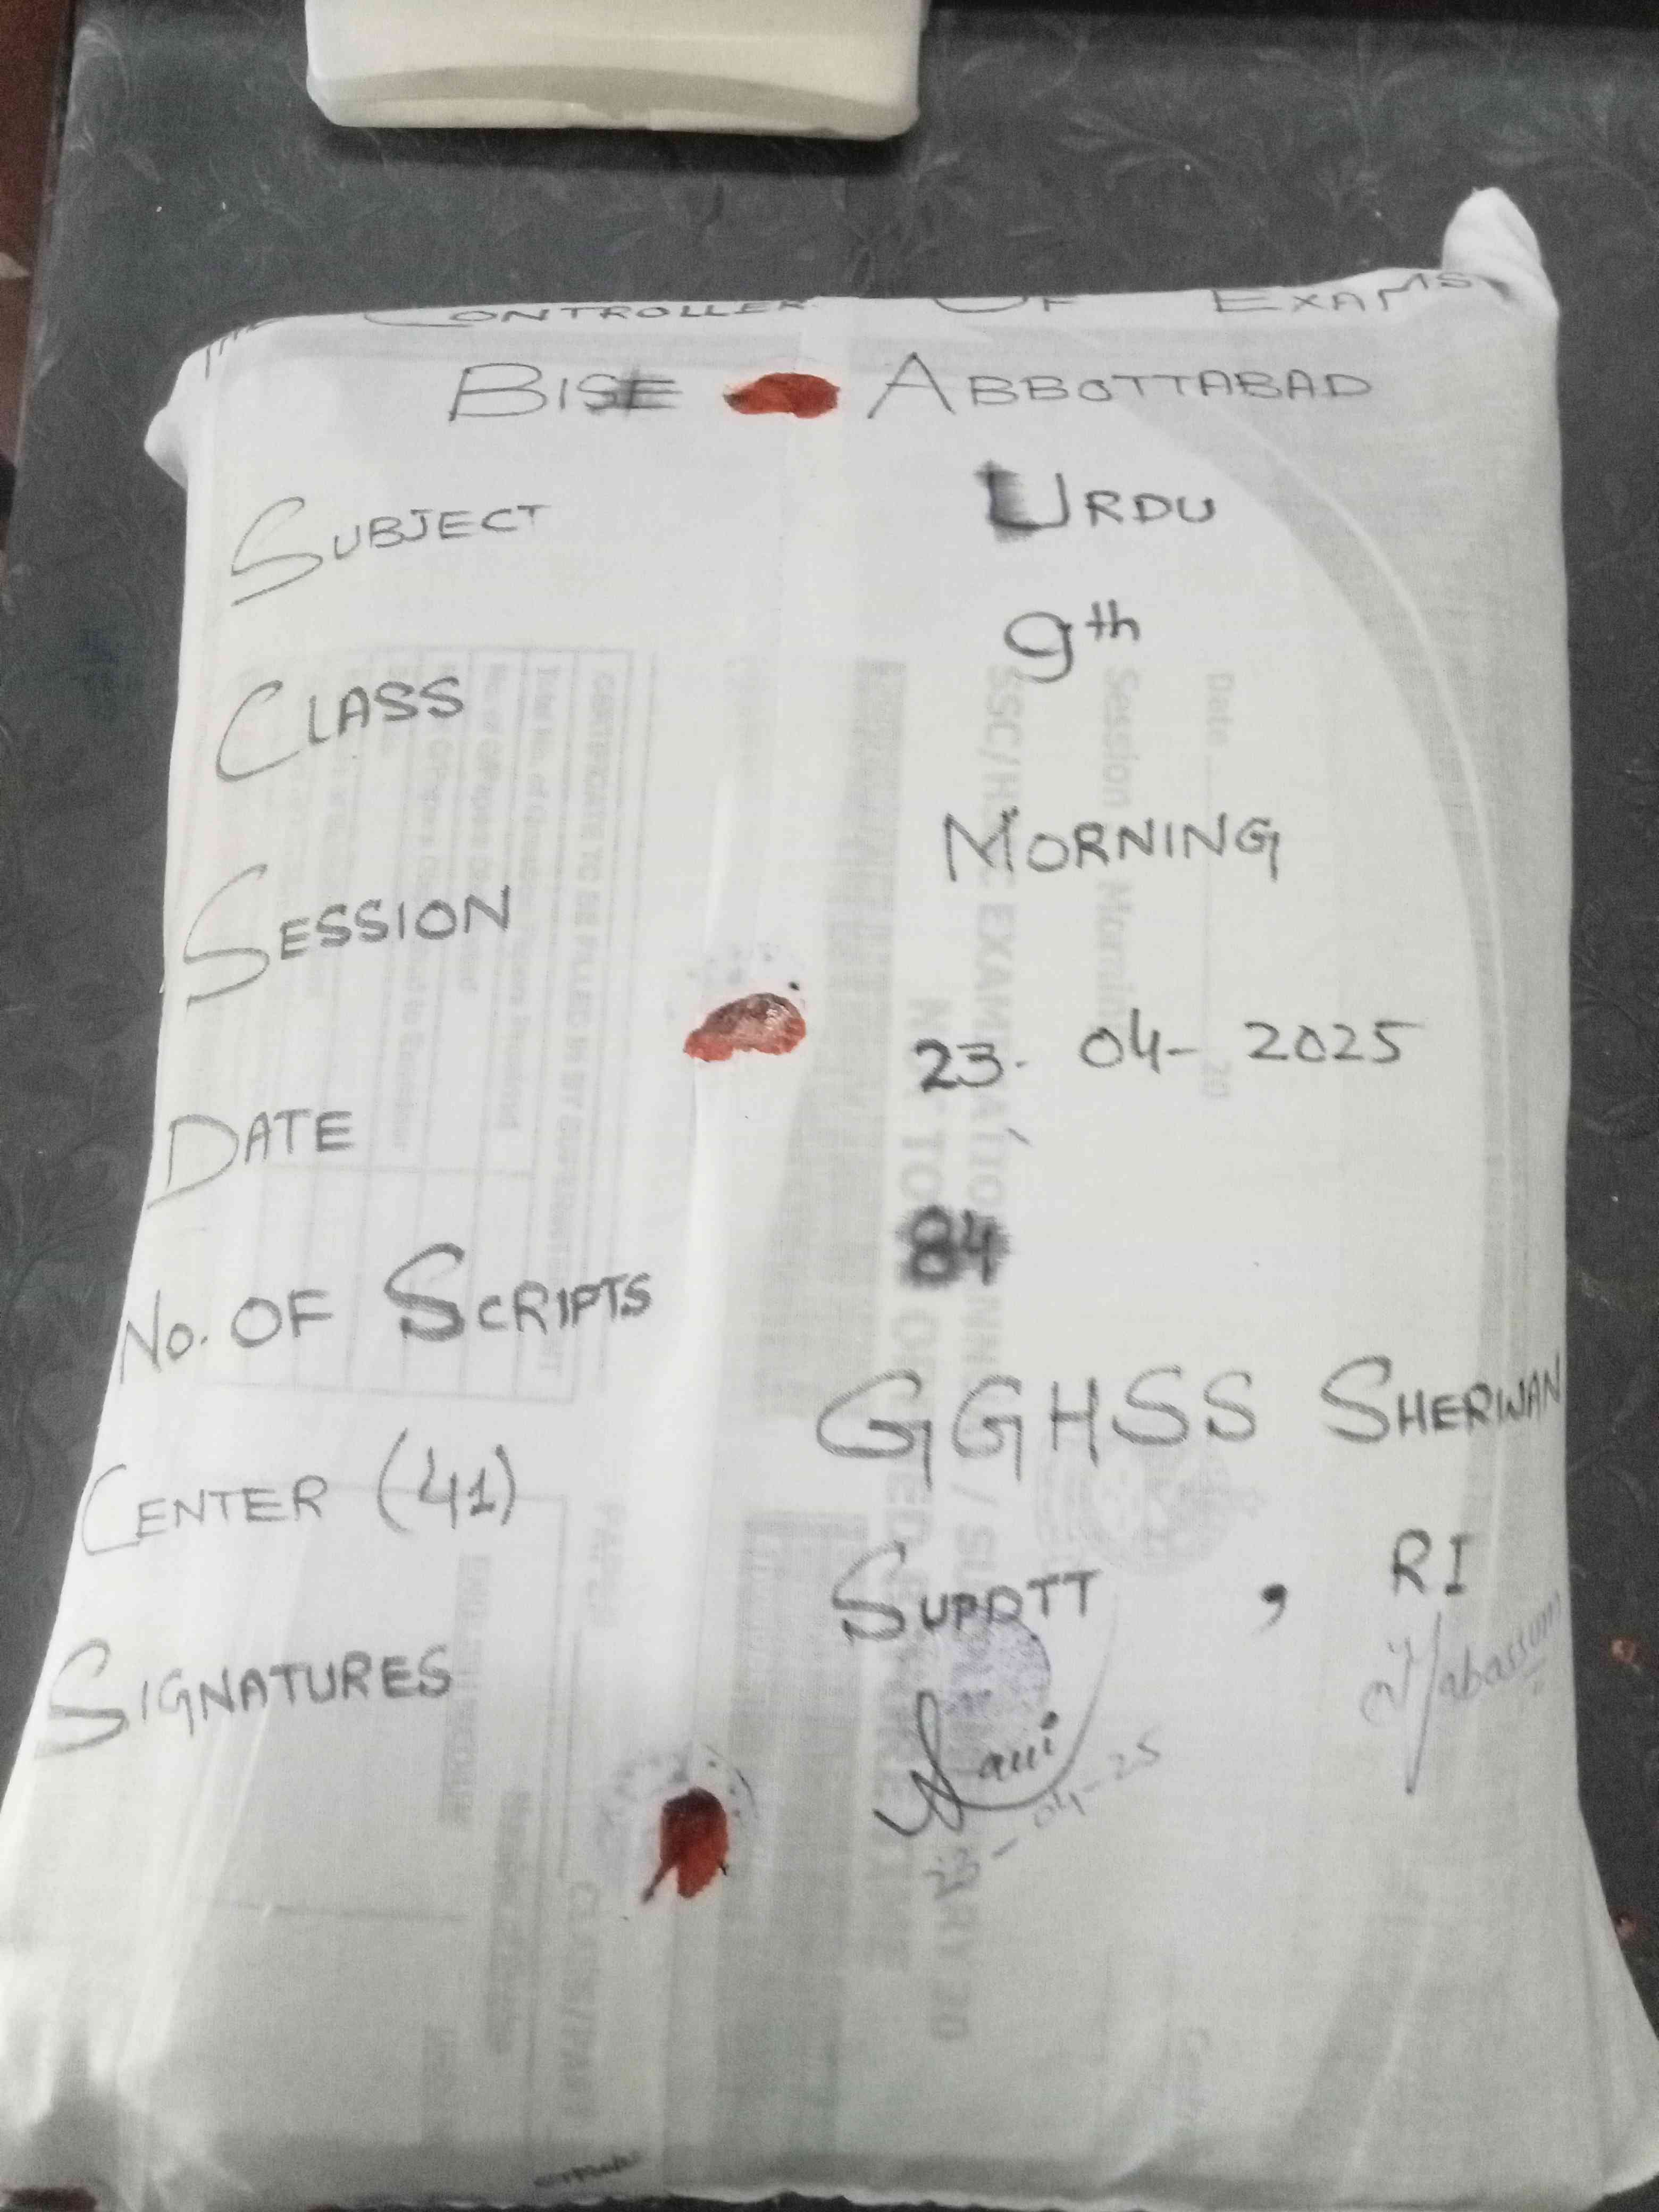 THE CONTROLLER OF EXAMS
BISE ABBOTTABAD
SUBJECT URDU
CLASS 9th
SESSION MORNING
DATE 23-04-2025
No. OF SCRIPTS 84
CENTER (41) GGHSS SHERWAN
SIGNATURES SUPDTT , RI
Tabassum
23-04-25